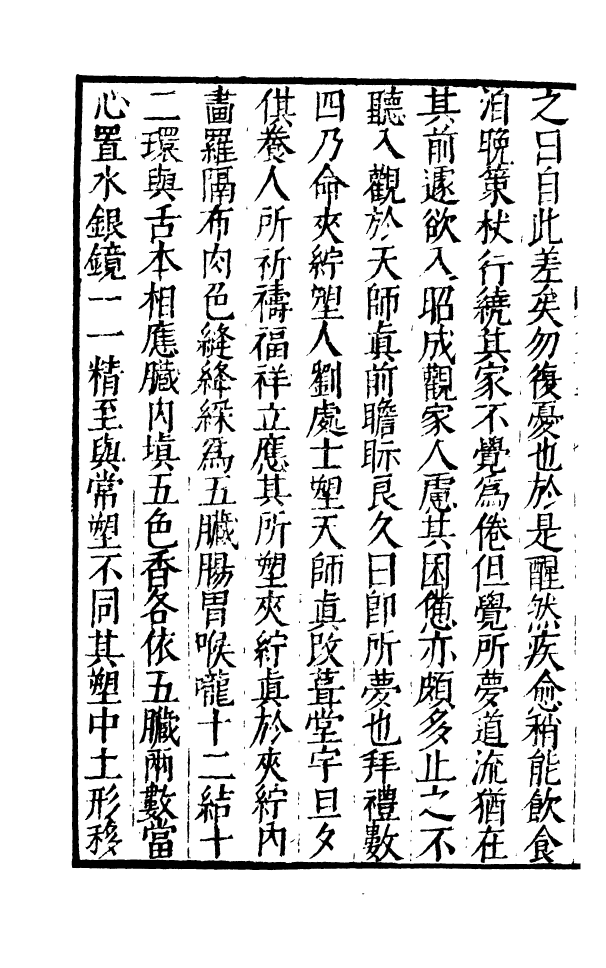 之曰自此差矣勿復憂也於是醒然疾愈稍能飲食
洎晚策杖行繞其家不覺爲倦但覺所夢道流猶在
其前遽欲入昭成觀家人慮其困憊亦頗多止之不
聽入觀於天師眞前瞻眎良久曰卽所夢也拜禮數
四乃命夾紵塑人劉處士塑天師眞改葺堂宇旦夕
供養人所祈禱福祥立應其所塑夾紵眞於夾紵內
畫羅隔布肉色縫絳綵爲五臟腸胃喉嚨十二結十
二環與舌本相應臟內塡五色香各依五臟兩數當
心置水銀鏡一一精至與常塑不同其塑中土形移